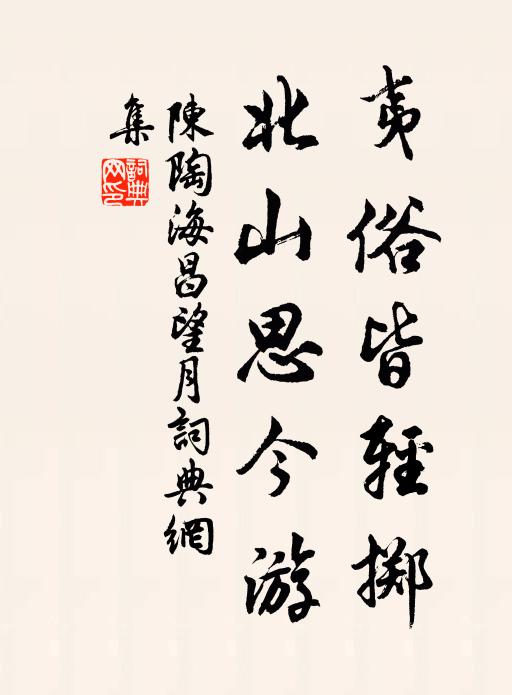 夷俗皆輕擲
北山思今游
陳陶海昌望月詞典網
集
詞典
网印